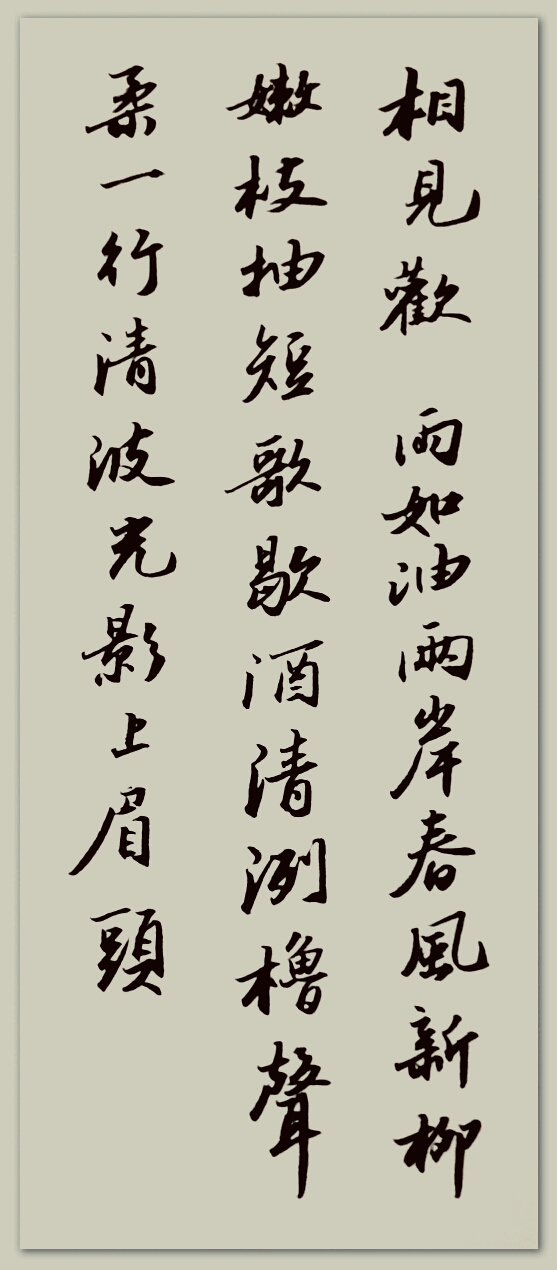 相見歡 雨如油兩岸春風新柳
嫩枝抽短歌歇酒清洌櫓聲
柔一行清波光影上眉頭